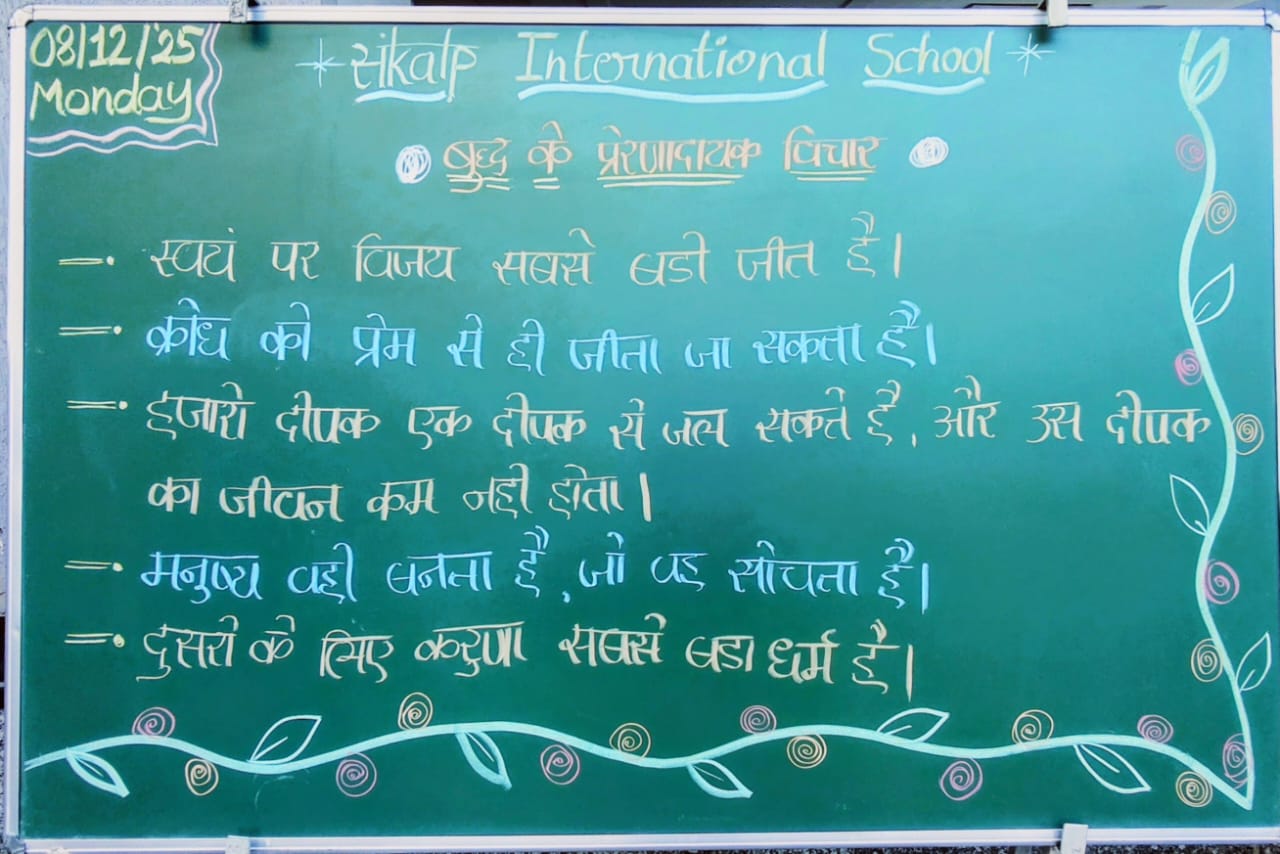 08/12/'25
Monday
sikalp International School
बुद्ध के प्रेरणादायक विचार
स्वयं पर विजय सबसे बडी जीत है।
क्रोध को प्रेम से ही जीता जा सकता है।
हजारो दीपक एक दीपक से जल सकते है, और उस दीपक
का जीवन कम नही होता।
मनुष्य वही बनता है, जो वह सोचता है।
दुसरो के लिए करुणा सबसे बडा धर्म है।